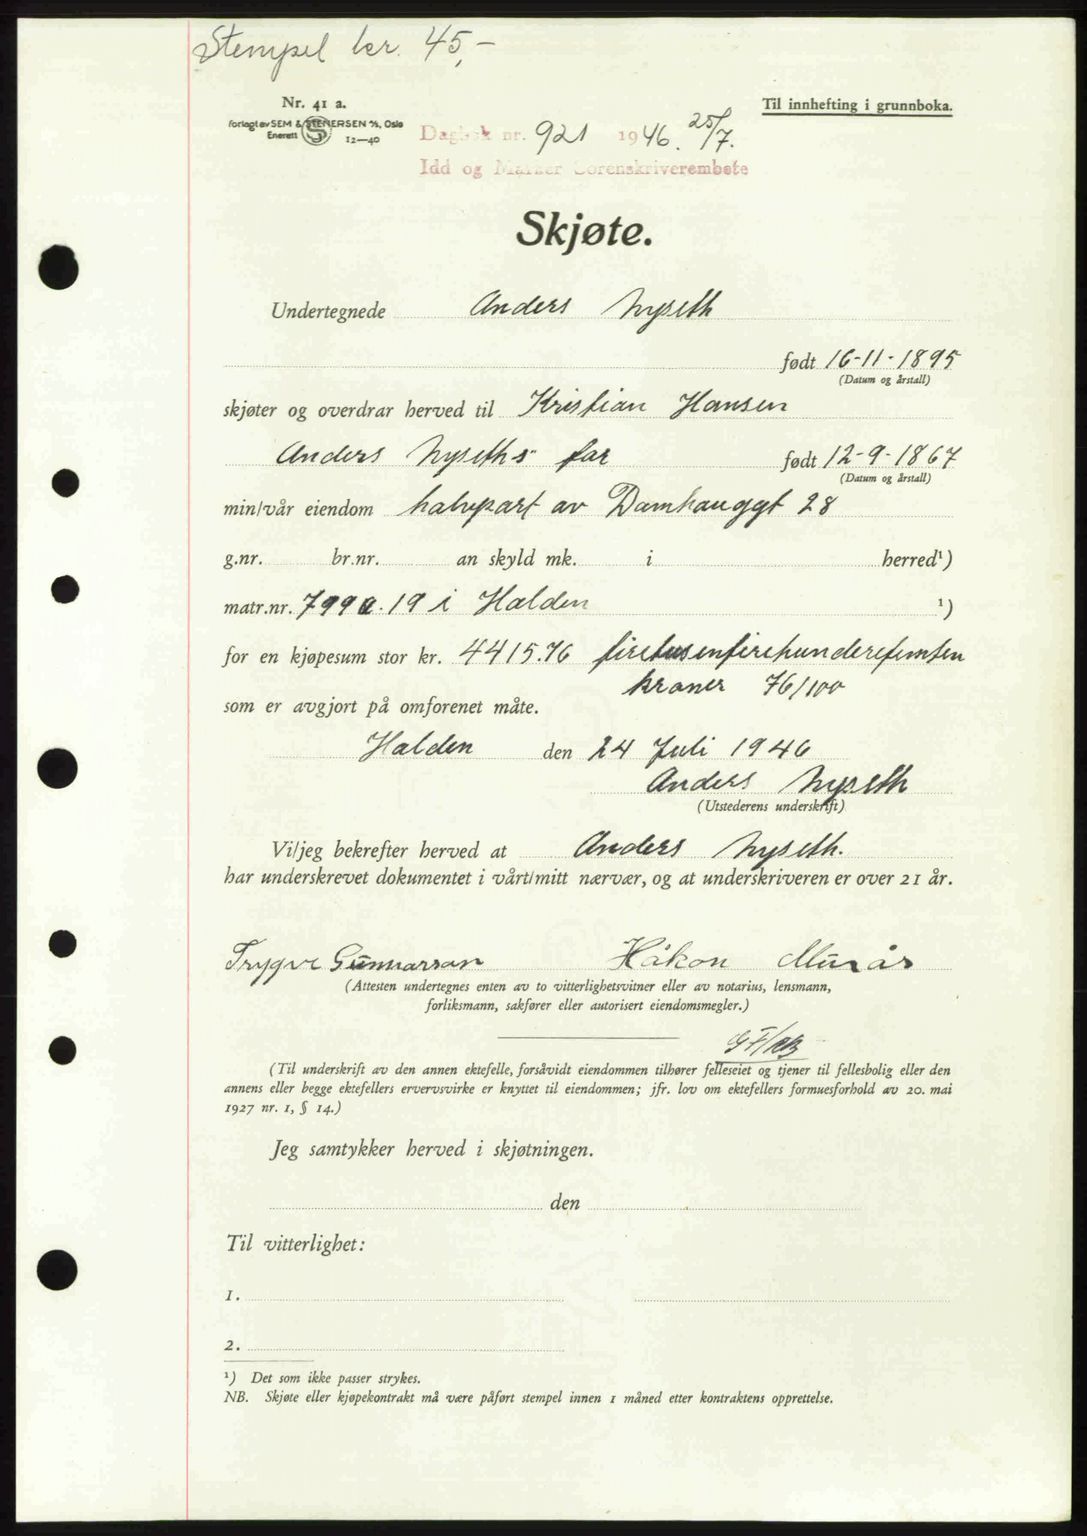 Stempel kr. 45,-
Nr. 41 a.
Til innhefting i grunnboka.
forlagt av SEM & STENERSEN A/S, Oslo
Enerett S 12—40
Dagbok nr. 921 1946. 25/7.
Idd og Marker Sorenskriverembete
Skjøte.
Undertegnede Anders Nyseth
født 16-11-1895
(Datum og årstall)
skjøter og overdrar herved til Kristian Hansen
Anders Nyseths far født 12-9-1867
(Datum og årstall)
min/vår eiendom halvpart av Damhauggt 28
g.nr. br.nr. an skyld mk. i herred¹)
matr.nr. 799a.19 i Halden ¹)
for en kjøpesum stor kr. 4415.76 firetusenfirehunderefemten
kroner 76/100
som er avgjort på omforenet måte.
Halden den 24 Juli 1946
Anders Nyseth
(Utstederens underskrift)
Vi/jeg bekrefter herved at Anders Nyseth.
har underskrevet dokumentet i vårt/mitt nærvær, og at underskriveren er over 21 år.
Trygve Gunnarson Håkon Murås
(Attesten undertegnes enten av to vitterlighetsvitner eller av notarius, lensmann,
forliksmann, sakfører eller autorisert eiendomsmegler.)
(Til underskrift av den annen ektefelle, forsåvidt eiendommen tilhører felleseiet og tjener til fellesbolig eller den
annens eller begge ektefellers ervervsvirke er knyttet til eiendommen; jfr. lov om ektefellers formuesforhold av 20. mai
1927 nr. 1, § 14.)
Jeg samtykker herved i skjøtningen.
den
Til vitterlighet:
1.
2.
¹) Det som ikke passer strykes.
NB. Skjøte eller kjøpekontrakt må være påført stempel innen 1 måned etter kontraktens opprettelse.